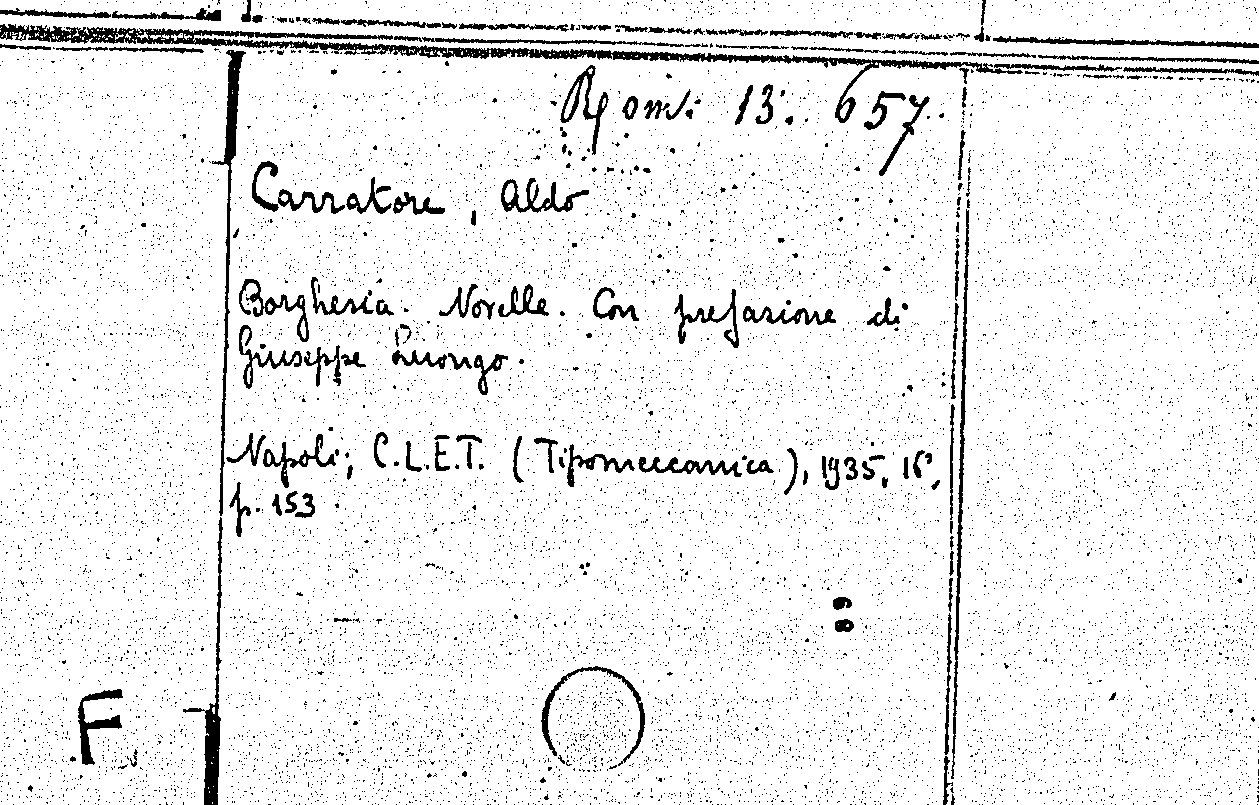 Rom. 13. 657
Carratore, Aldo
Borghesia. Novelle. Con prefazione di
Giuseppe Luongo.
Napoli, C.L.E.T. (Tipomeccanica), 1935, 16°,
p. 153
68
F